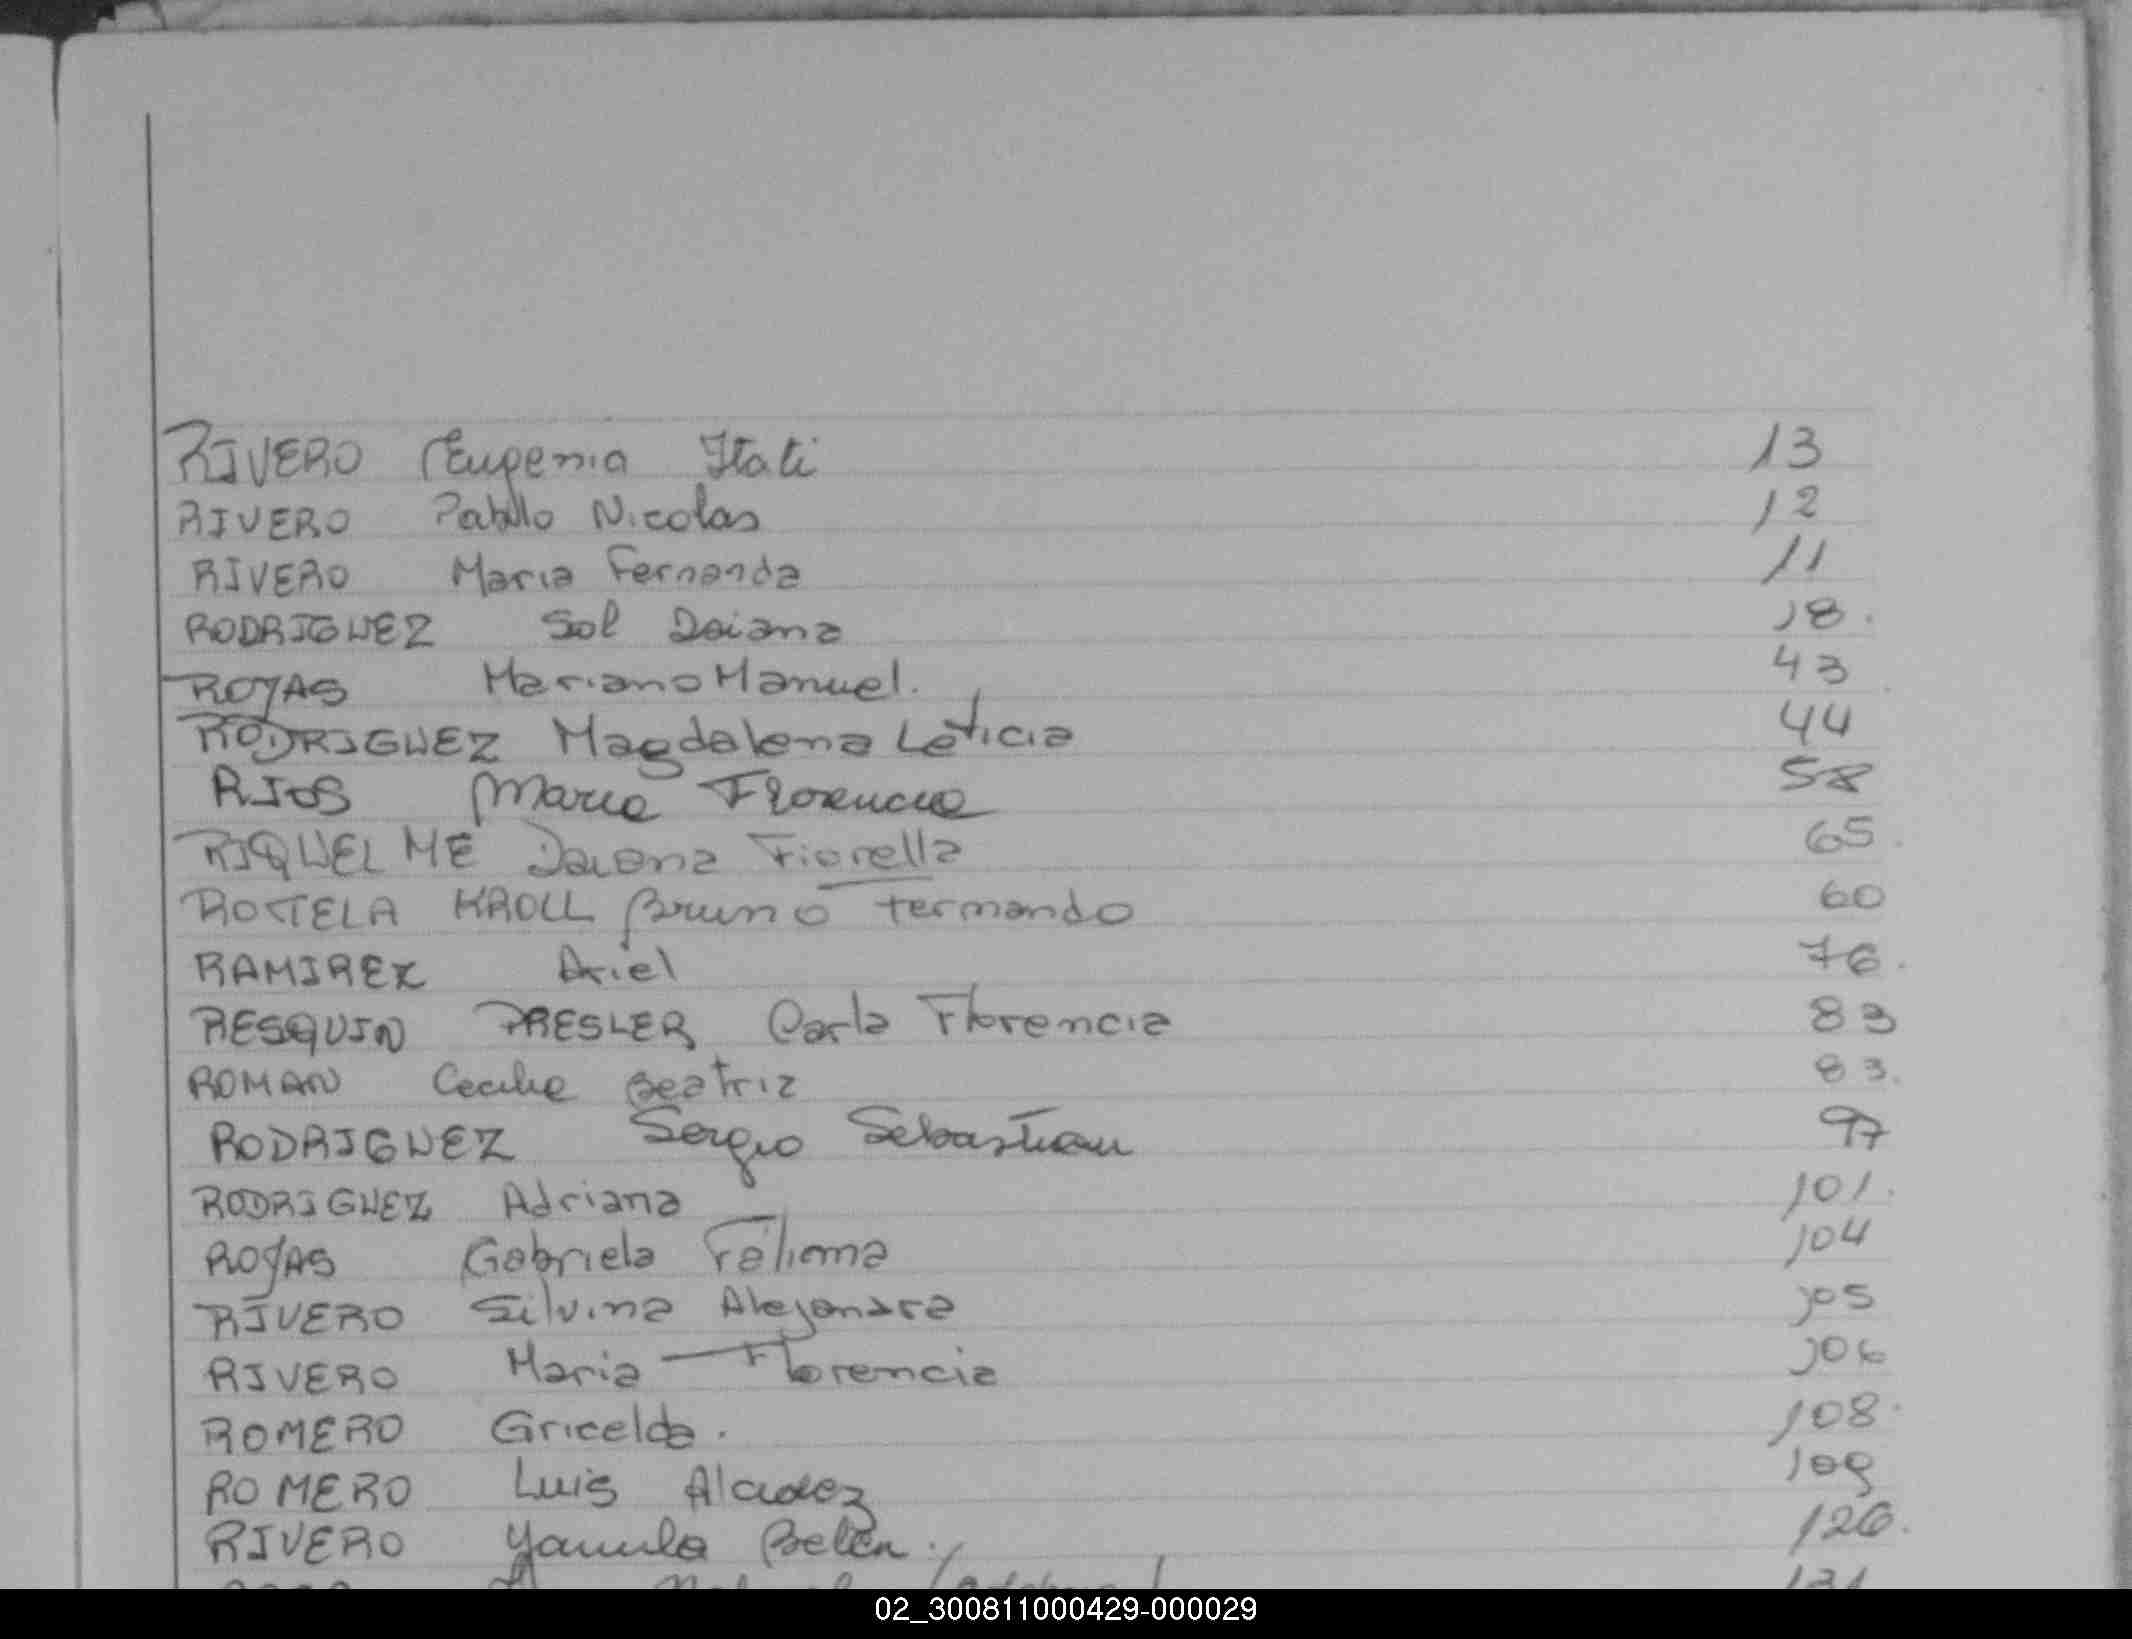 RIVERO Eugenia Itati 13
RIVERO Pabllo Nicolas 12
RIVERO Maria Fernanda 11
RODRIGUEZ Sol Daiana 18.
ROJAS Mariano Manuel. 43
RODRIGUEZ Magdalena Leticia 44
RIOS Maria Florencia 58
RIQUELME Daiana Fiorella 65.
ROTELA KROLL Bruno Fernando 60
RAMIREZ Ariel 76.
RESQUIN PRESLER Carla Florencia 83
ROMAN Cecilia Beatriz 83.
RODRIGUEZ Sergio Sebastian 97
RODRIGUEZ Adriana 101.
ROJAS Gabriela 104
RIVERO Silvina Alejandra 105
RIVERO Maria Florencia 106
ROMERO Gricelda. 108.
ROMERO Luis 109
RIVERO Yamila Belen. 126.
02_300811000429-000029